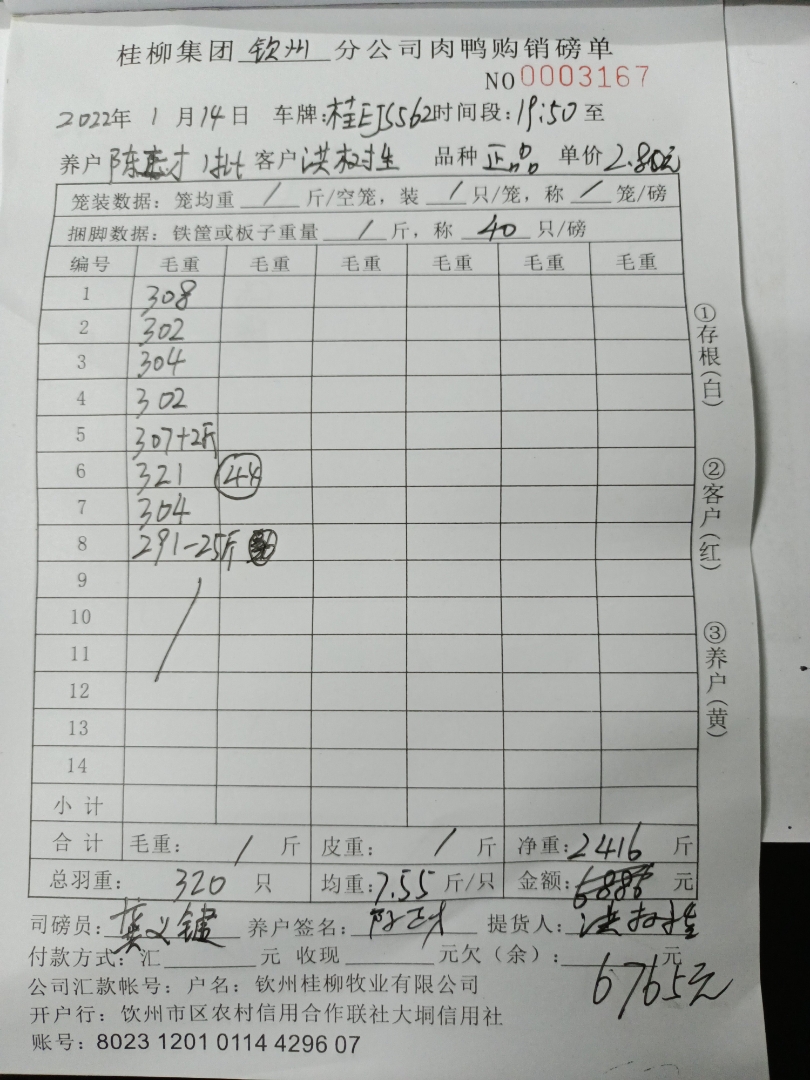 桂柳集团 钦州 分公司肉鸭购销磅单
NO 0003167
2022年 1 月 14 日 车牌:桂EJS562 时间段:19:50 至
养户 陈 才 1批 客户 洪权生 品种 正品 单价 2.80元
笼装数据:笼均重 / 斤/空笼,装 / 只/笼,称 / 笼/磅
捆脚数据:铁筐或板子重量 / 斤,称 40 只/磅
编号 毛重 毛重 毛重 毛重 毛重 毛重
1 308
2 302
3 304
4 302
5 307+2斤
6 321 44
7 304
8 291-25斤
9
10
11
12
13
14
小 计
合 计 毛重: / 斤 皮重: / 斤 净重:2416 斤
总羽重: 320 只 均重:7.55 斤/只 金额: 元
司磅员: 养户签名: 提货人:洪权生
付款方式:汇 元 收现 元欠(余): 元
6765元
公司汇款帐号:户名:钦州桂柳牧业有限公司
开户行:钦州市区农村信用合作联社大垌信用社
账号:8023 1201 0114 4296 07
①存根(白) ②客户(红) ③养户(黄)